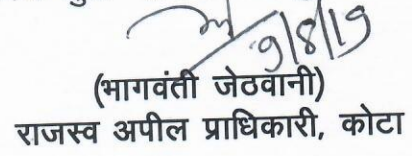 9/8/19
(भागवंती जेठवानी)
राजस्व अपील प्राधिकारी, कोटा